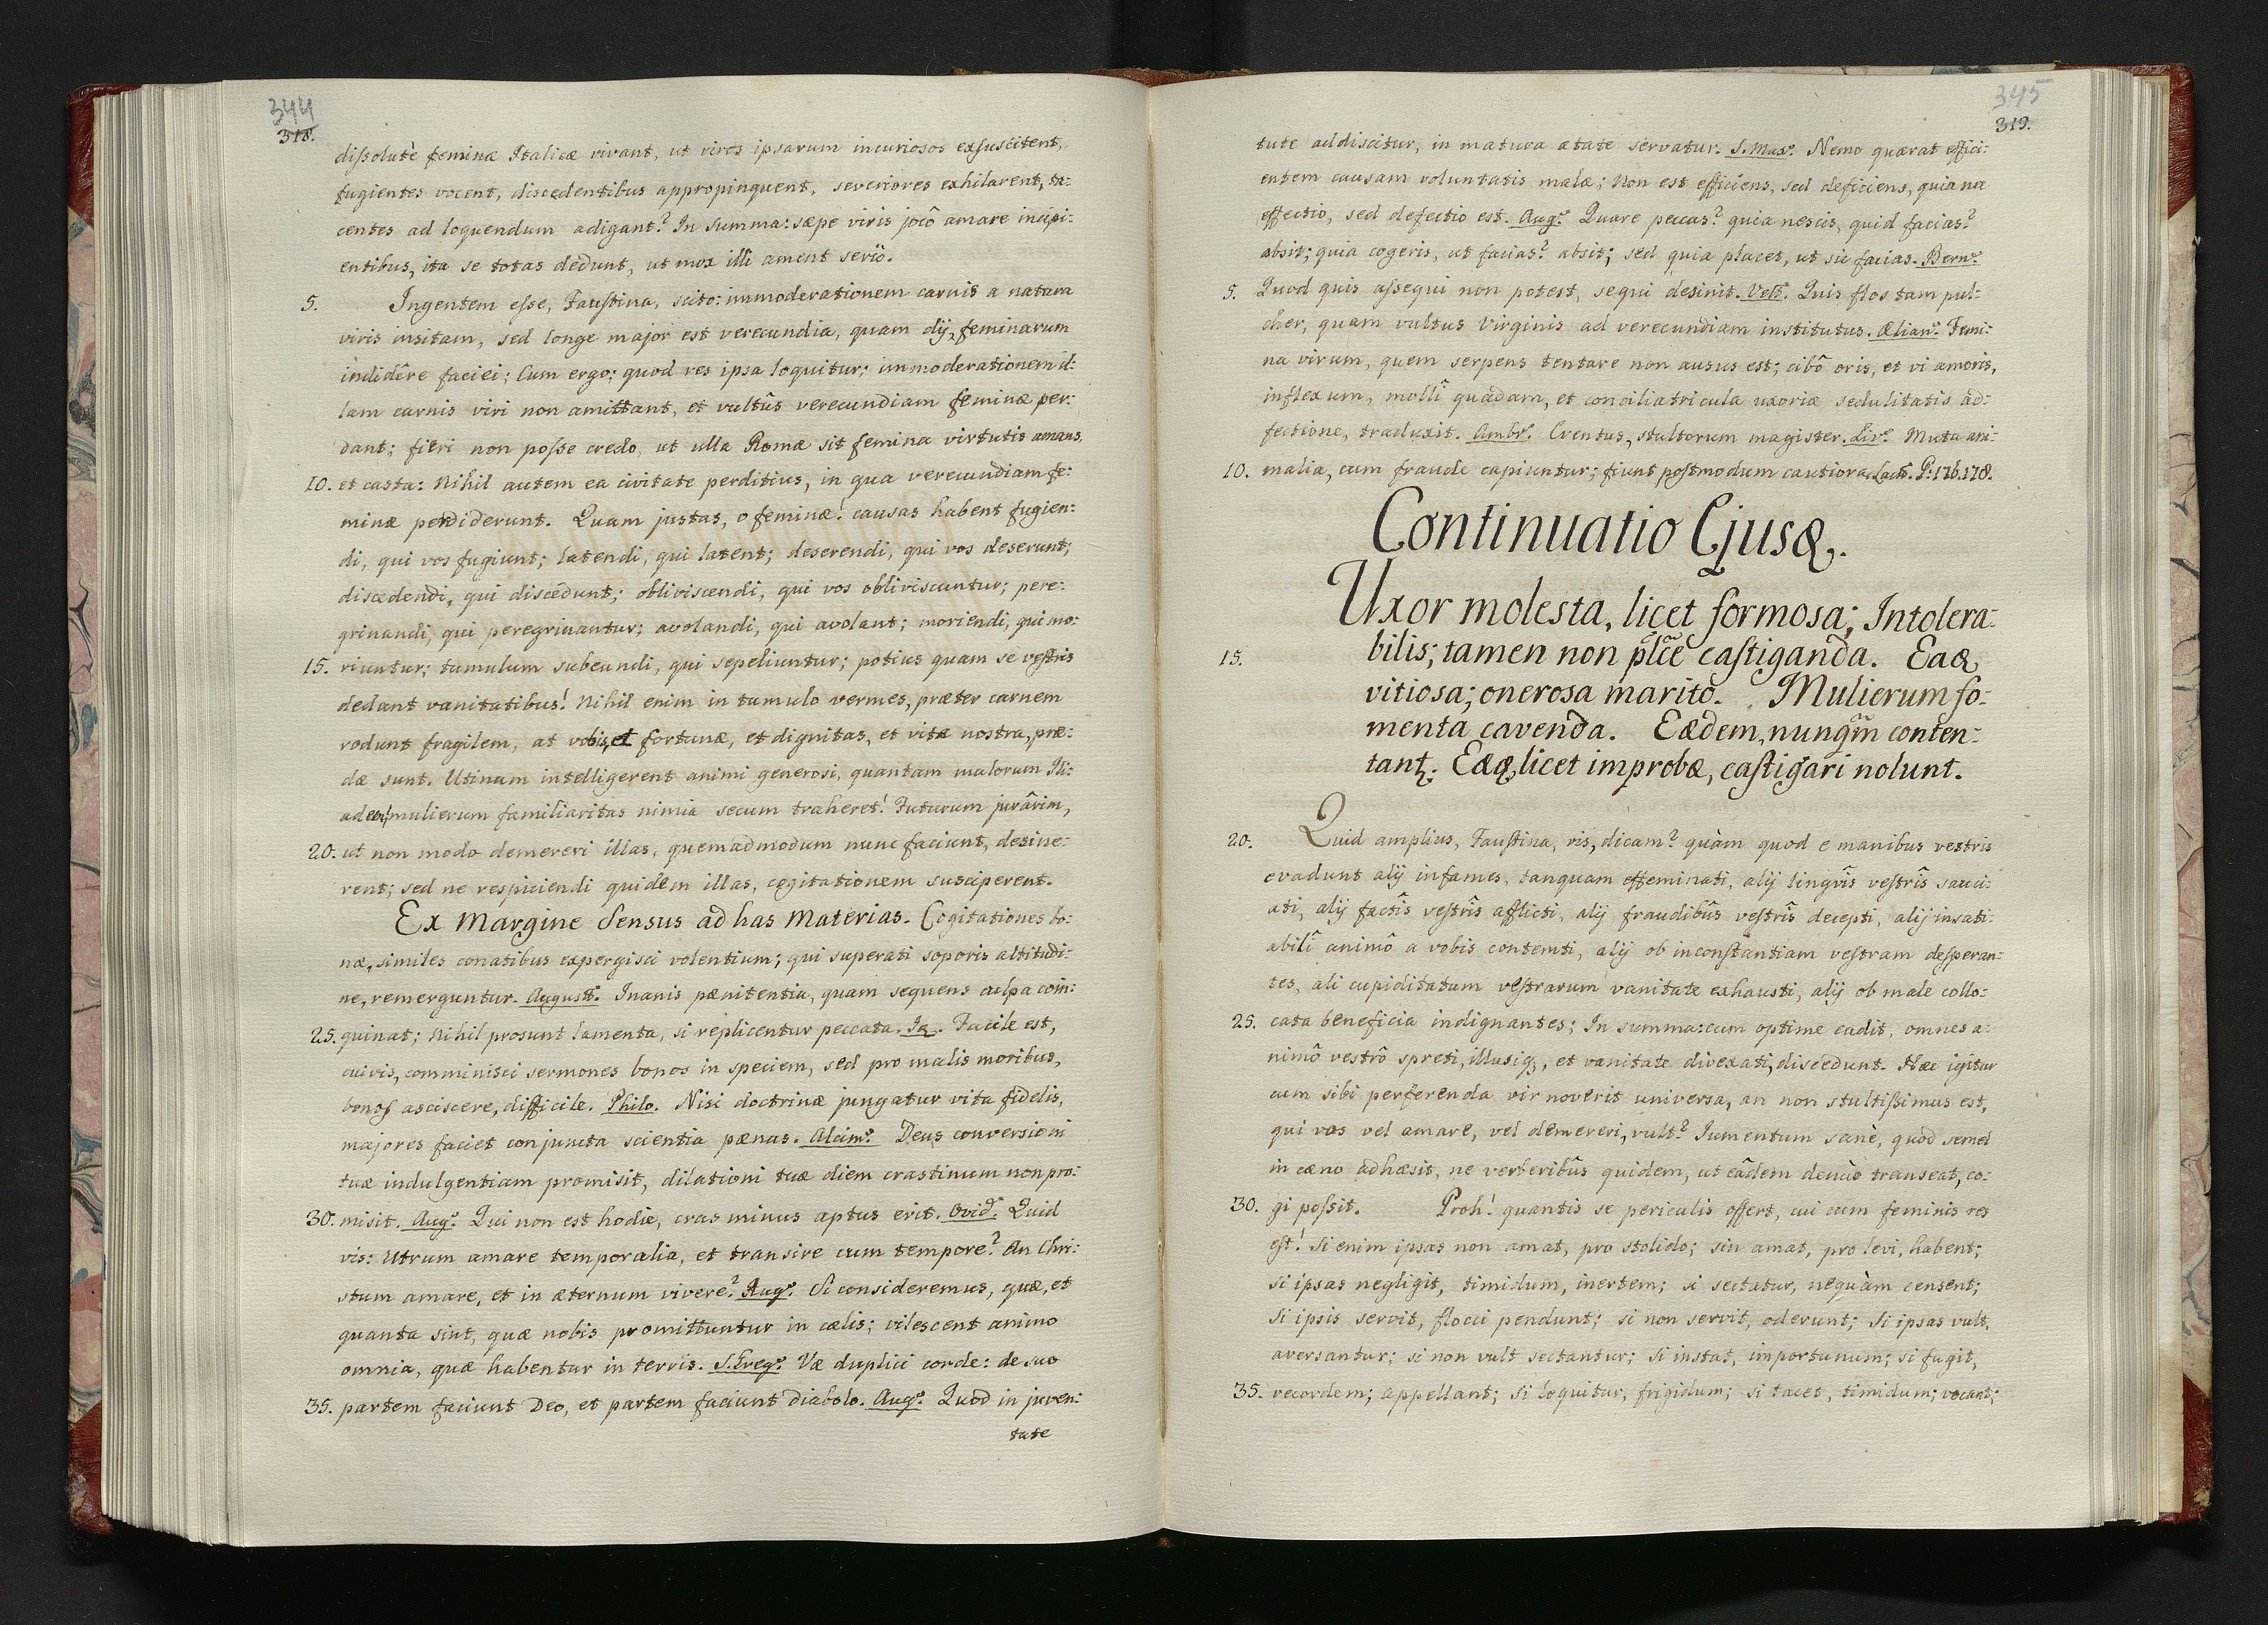 344
318.
dißolutè feminæ Italicæ vivant, ut viros ipsarum incuriosos exsuscitent,
fugientes vocent, discedentibus appropinquent, severiores exhilarent, ta:
centes ad loquendum adigant? In summa: sæpe viris jocô amare incipi:
entibus, ita se totas dedunt, ut mox illi ament seriò.
5. Ingentem eße, Faustina, scito: immoderationem carnis a natura
viris insitam, sed longe major est verecundia, quam dij, feminarum
indidêre faciei; Cum ergo; quod res ipsa loquitur; immoderationem il:
lam carnis viri non amittant, et vultûs verecundiam feminæ per:
dant; fieri non poße credo, ut ulla Romæ sit femina virtutis amans,
10. et casta: Nihil autem ea civitate perditius, in qua verecundiam fe:
minæ perdiderunt. Quam justas, o feminæ! causas habent fugien:
di, qui vos fugiunt; latendi, qui latent; deserendi, qui vos deserunt;
discedendi, qui discedunt; obliviscendi, qui vos obliviscuntur; pere:
grinandi, qui peregrinantur; avolandi, qui avolant; moriendi, qui mo:
15. riuntur; tumulum subeundi, qui sepeliuntur; potius quam se vestris
dedant vanitatibus! Nihil enim in tumulo vermes, præter carnem
rodunt fragilem, at vobis, et fortunæ, et dignitas, et vita nostra, præ:
dæ sunt. Utinam intelligerent animi generosi, quantam malorum Ili:
adem mulierum familiaritas nimia secum traheret! Futurum jurârim,
20. ut non modo demereri illas, quemadmodum nunc faciunt, desine:
rent; sed ne respiciendi quidem illas, cogitationem susciperent.
Ex Margine Sensus ad has Materias. Cogitationes bo:
næ, similes conatibus expergisci volentium; qui superati soporis altitudi:
ne, remerguntur. August9. Inanis pænitentia, quam sequens culpa coin:
25. quinat; Nihil prosunt lamenta, si replicentur peccata. Facile est,
cuivis, comminisci sermones bonos in speciem, sed pro malis moribus,
bonos asciscere, difficile. Philo. Nisi doctrinæ jungatur vita fidelis,
majores faciet conjuncta scientia pænas. Alcim9. Deus conversioni
tuæ indulgentiam promisit, dilationi tuæ diem crastinum non pro:
30. misit. Aug9. Qui non est hodie, cras minus aptus erit. Ovid9. Quid
vis: Utrum amare temporalia, et transire cum tempore? An Chri:
stum amare, et in æternum vivere? Aug9. Si consideremus, quæ, et
quanta sint, quæ nobis promittuntur in cælis; vilescent animo
omnia, quæ habentur in terris. S. Greg9. Væ duplici corde: de suo
35. partem faciunt Deo, et partem faciunt diabolo. Aug9. Quod in juven:
tute
345
319.
tute addiscitur, in matura ætate servatur. S. Max9. Nemo quærat effici:
entem causam voluntatis malæ; Non est efficiens, sed deficiens, quia nō
effectio, sed defectio est. Aug9. Quare peccas? quia nescis, quid facias?
absit; quia cogeris, ut facias? absit; sed quia placet, ut sic facias. Bern9.
5. Quod quis aßequi non potest, sequi desinit. Quis flos tam pul:
cher, quam vultus Virginis ad verecundiam institutus. Ælian9. Femi:
na virum, quem serpens tentare non ausus est; cibô oris, et vi amoris,
inflexum, mollî quadam, et conciliatricula uxoriæ sedulitatis ad:
fectione, traduxit. Ambr9. Eventus, stultorum magister. Liv9. Muta ani:
10. malia, cum fraude capiuntur; fiunt postmodum cautiora. Lact9. P: 176. 178.
Continuatio Ejusq,.
Uxor molesta, licet formosa; Intolera:
15. bilis; tamen non plc̃e castiganda. Eaq,
vitiosa; onerosa maritо. Mulierum fo:
menta cavenda. Eædem, nunqm̃ conten:
tant,. Eæq, licet improbæ, castigari nolunt.
20. Quid amplius, Faustina, vis, dicam? quàm quod e manibus vestris
evadunt alij infames, tanquam effeminati, alij linguîs vestrîs sauci:
ati, alij factîs vestrîs afflicti, alij fraudibûs vestrîs decepti, alij insati:
abilî animô a vobis contemti, alij ob inconstantiam vestram desperan:
tes, ali cupiditatum vestrarum vanitate exhausti, alij ob male collo:
25. cata beneficia indignantes; In summa: cum optime cadit, omnes a:
nimô vestrô spreti, illusiq,, et vanitate divexati, discedunt. Hæc igitur
cum sibi perferenda vir noverit universa, an non stultißimus est,
qui vos vel amare, vel demereri, vult? Jumentum sanè, quod semel
in cæno adhæsit, ne verberibûs quidem, ut eâdem denùo transeat, co:
30. gi poßit. Proh! quantis se periculis offert, cui cum feminis res
est! Si enim ipsas non amat, pro stolido; sin amat, pro levi, habent;
si ipsas negligit, timidum, inertem; si sectatur, nequàm censent;
Si ipsis servit, flocci pendunt; si non servit, oderunt; Si ipsas vult,
aversantur; si non vult sectantur; Si instat, importunum; si fugit,
35. vecordem; appellant; Si loquitur, frigidum; si tacet, timidum; vocant;